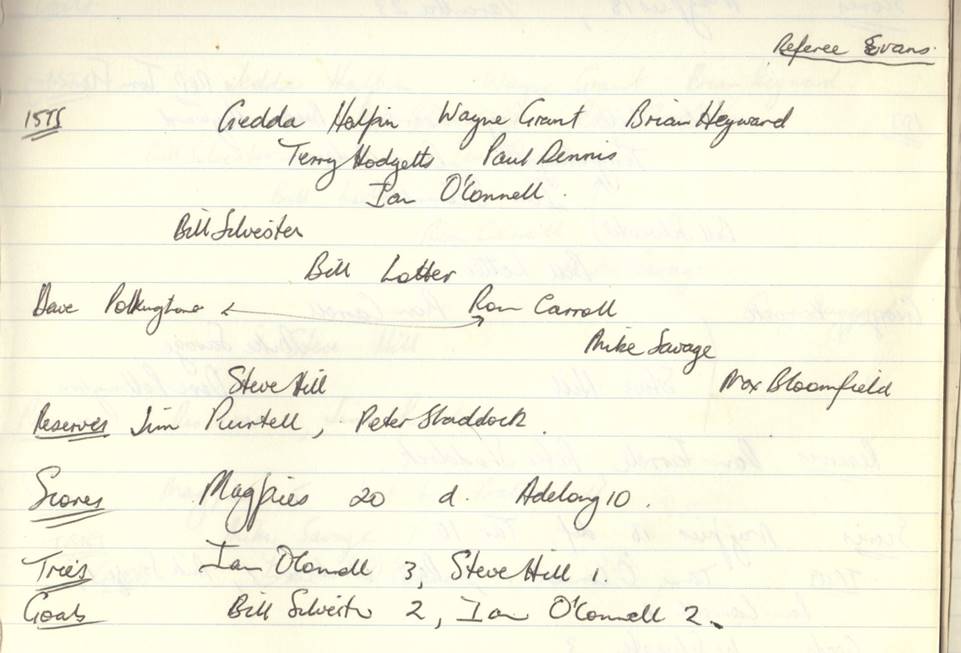 Referee Evans.
1sts Gedda Halpin Wayne Grant Brian Heyward
Terry Hodgetts Paul Dennis
Ian O'Connell.
Bill Silvester
Bill Lotter
Dave Polkinghorne Ron Carroll
Mike Savage
Steve Hill Max Bloomfield
Reserves Jim Purtell, Peter Shaddock.
Scores Magpies 20 d. Adelong 10.
Tries Ian O'Connell 3, Steve Hill 1.
Goals Bill Silvester 2, Ian O'Connell 2.